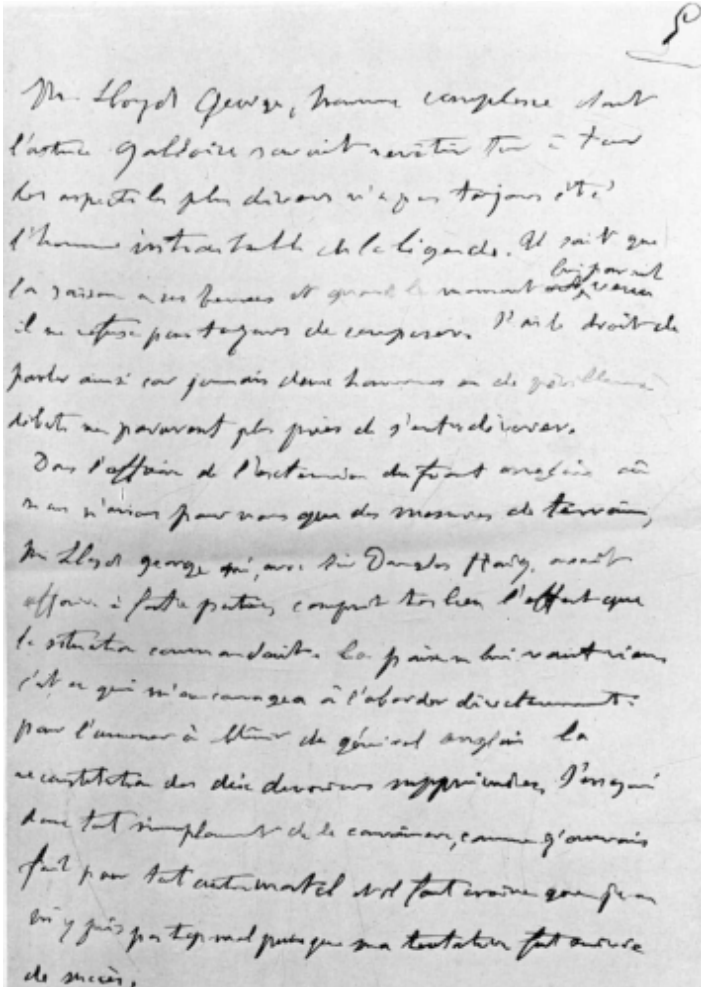 5
Mr Lloyd George, homme complexe dont
l'astuce galloise savait revêtir tour à tour
les aspects les plus divers n'a pas toujours été
l'homme intraitable de la légende. Il sait que
lui paraît
la raison a ses heures et quand le moment venu
il ne refuse pas toujours de composer. J'ai le droit de
parler ainsi car jamais deux hommes en de
débats ne parurent plus près de s'entredévorer.
Dans l'affaire de l'extension du front anglais où
nous n'avions pour nous que des mesures de terrain,
Mr Lloyd George qui, avec Sir Douglas Haig, avait
affaire à forte partie, comprit très bien l'effort que
la situation commandait.
c'est ce qui m'encouragea à l'aborder directement
pour l'amener à obtenir du général anglais la
reconstitution des dix divisions supprimées. J'essayai
donc tout simplement de le convaincre, comme j'aurais
fait pour tout autre mortel et il faut croire que je ne
m'y pris pas trop mal puisque ma tentative fut suivie
de succès.